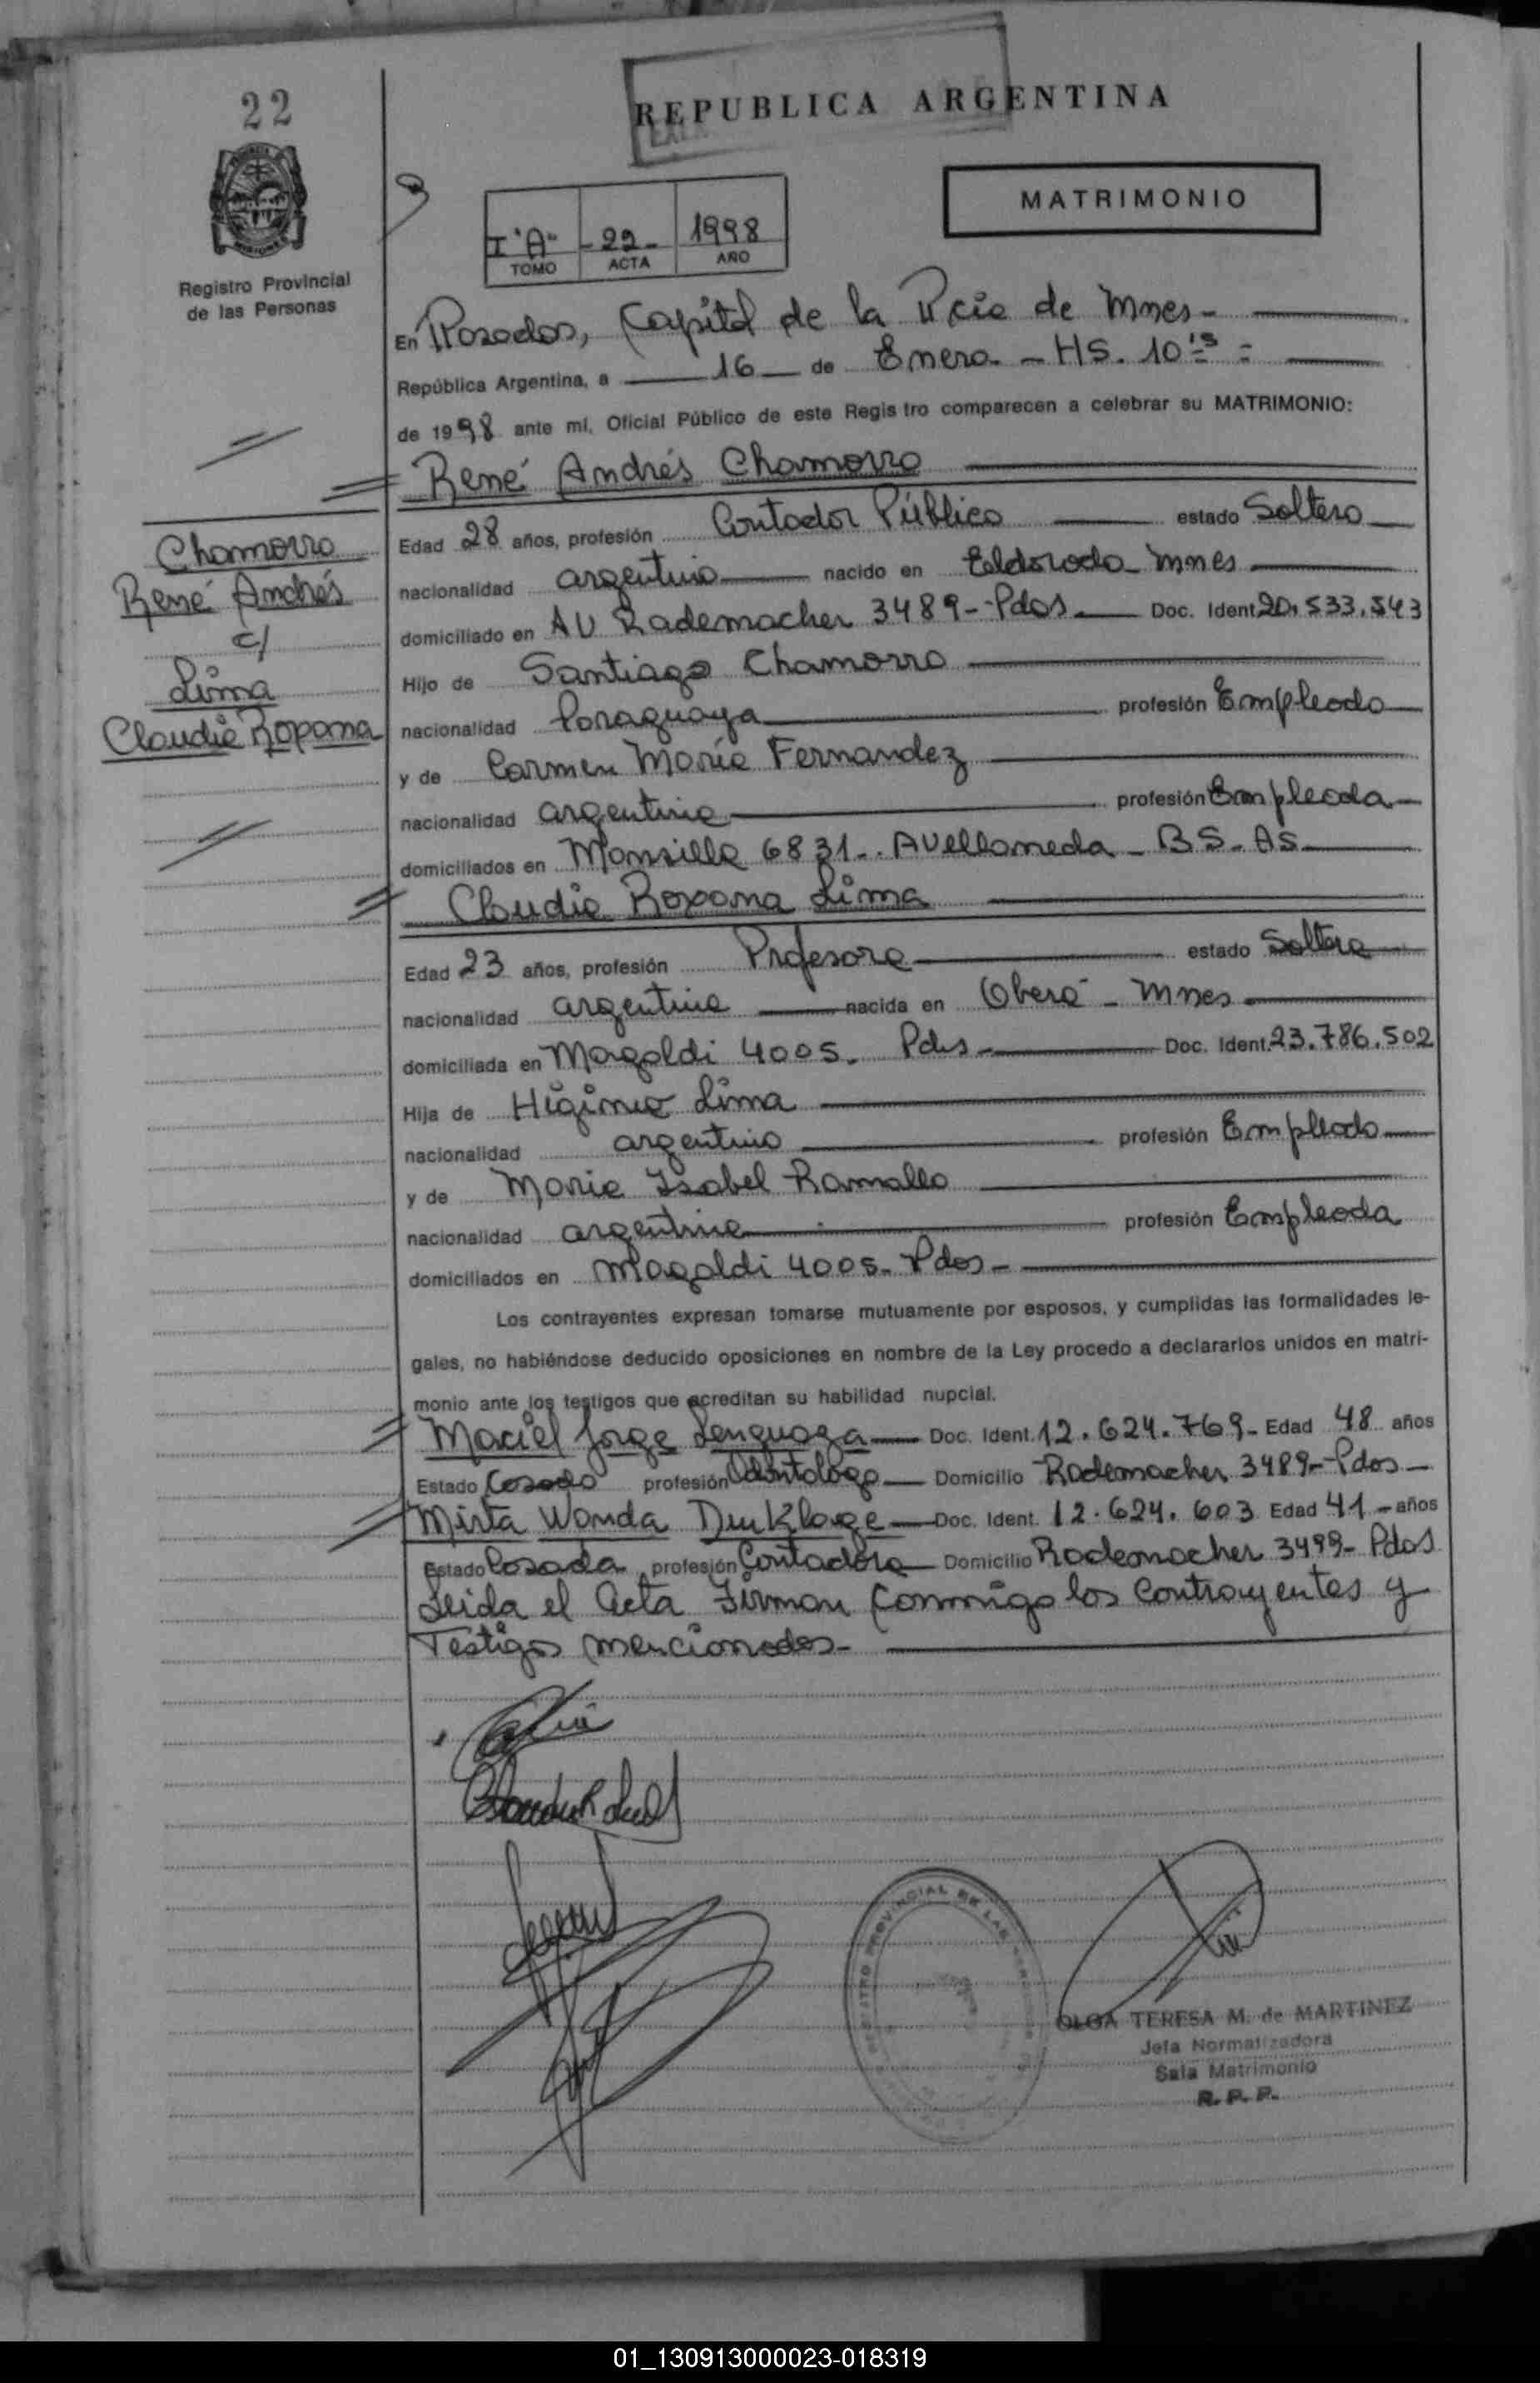 22
REPUBLICA ARGENTINA
MATRIMONIO
I "A" - 22 - 1998
TOMO ACTA AÑO
Registro Provincial
de las Personas
En Posadas, Capital de la Pcia de Mnes -
República Argentina, a 16 de Enero - HS. 10:15 =
de 1998 ante mí, Oficial Público de este Registro comparecen a celebrar su MATRIMONIO:
René Andrés Chamorro
Chamorro
René Andrés
c/
Lima
Claudia Roxana
Edad 28 años, profesión Contador Público estado Soltero
nacionalidad argentino nacido en Eldorado Mnes
domiciliado en AV Rademacher 3489 - Pdos Doc. Ident. 20.533.543
Hijo de Santiago Chamorro
nacionalidad Paraguaya profesión Empleado
y de Carmen María Fernandez
nacionalidad argentina profesión Empleada
domiciliados en Mansilla 6831 - Avellaneda - BS - AS
Claudia Roxana Lima
Edad 23 años, profesión Profesora estado Soltera
nacionalidad argentina nacida en Oberá - Mnes
domiciliada en Magaldi 4005 - Pdos Doc. Ident. 23.786.502
Hija de Higinio Lima
nacionalidad argentino profesión Empleado
y de Maria Isabel Ramallo
nacionalidad argentina profesión Empleada
domiciliados en Magaldi 4005 - Pdos -
Los contrayentes expresan tomarse mutuamente por esposos, y cumplidas las formalidades le-
gales, no habiéndose deducido oposiciones en nombre de la Ley procedo a declararlos unidos en matri-
monio ante los testigos que acreditan su habilidad nupcial.
Maciel Jorge Lenguaza Doc. Ident. 12.624.769 - Edad 48 años
Estado Casado profesión Odontólogo Domicilio Rademacher 3489 - Pdos -
Mirta Wanda Dunklage Doc. Ident. 12.624.603 Edad 41 - años
Estado Casada profesión Contadora Domicilio Rademacher 3499 - Pdos
Leida el Acta Firman conmigo los Contrayentes y
Testigos mencionados -
REGISTRO PROVINCIAL DE LAS
OLGA TERESA M. de MARTINEZ
Jefa Normalizadora
Sala Matrimonio
R. P. P.
01_130913000023-018319